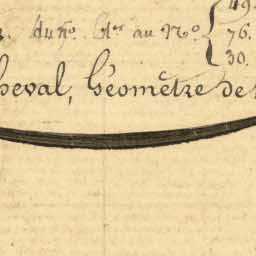 du N.º au N.º { 49.
76.
30.
heval, Géomètre de